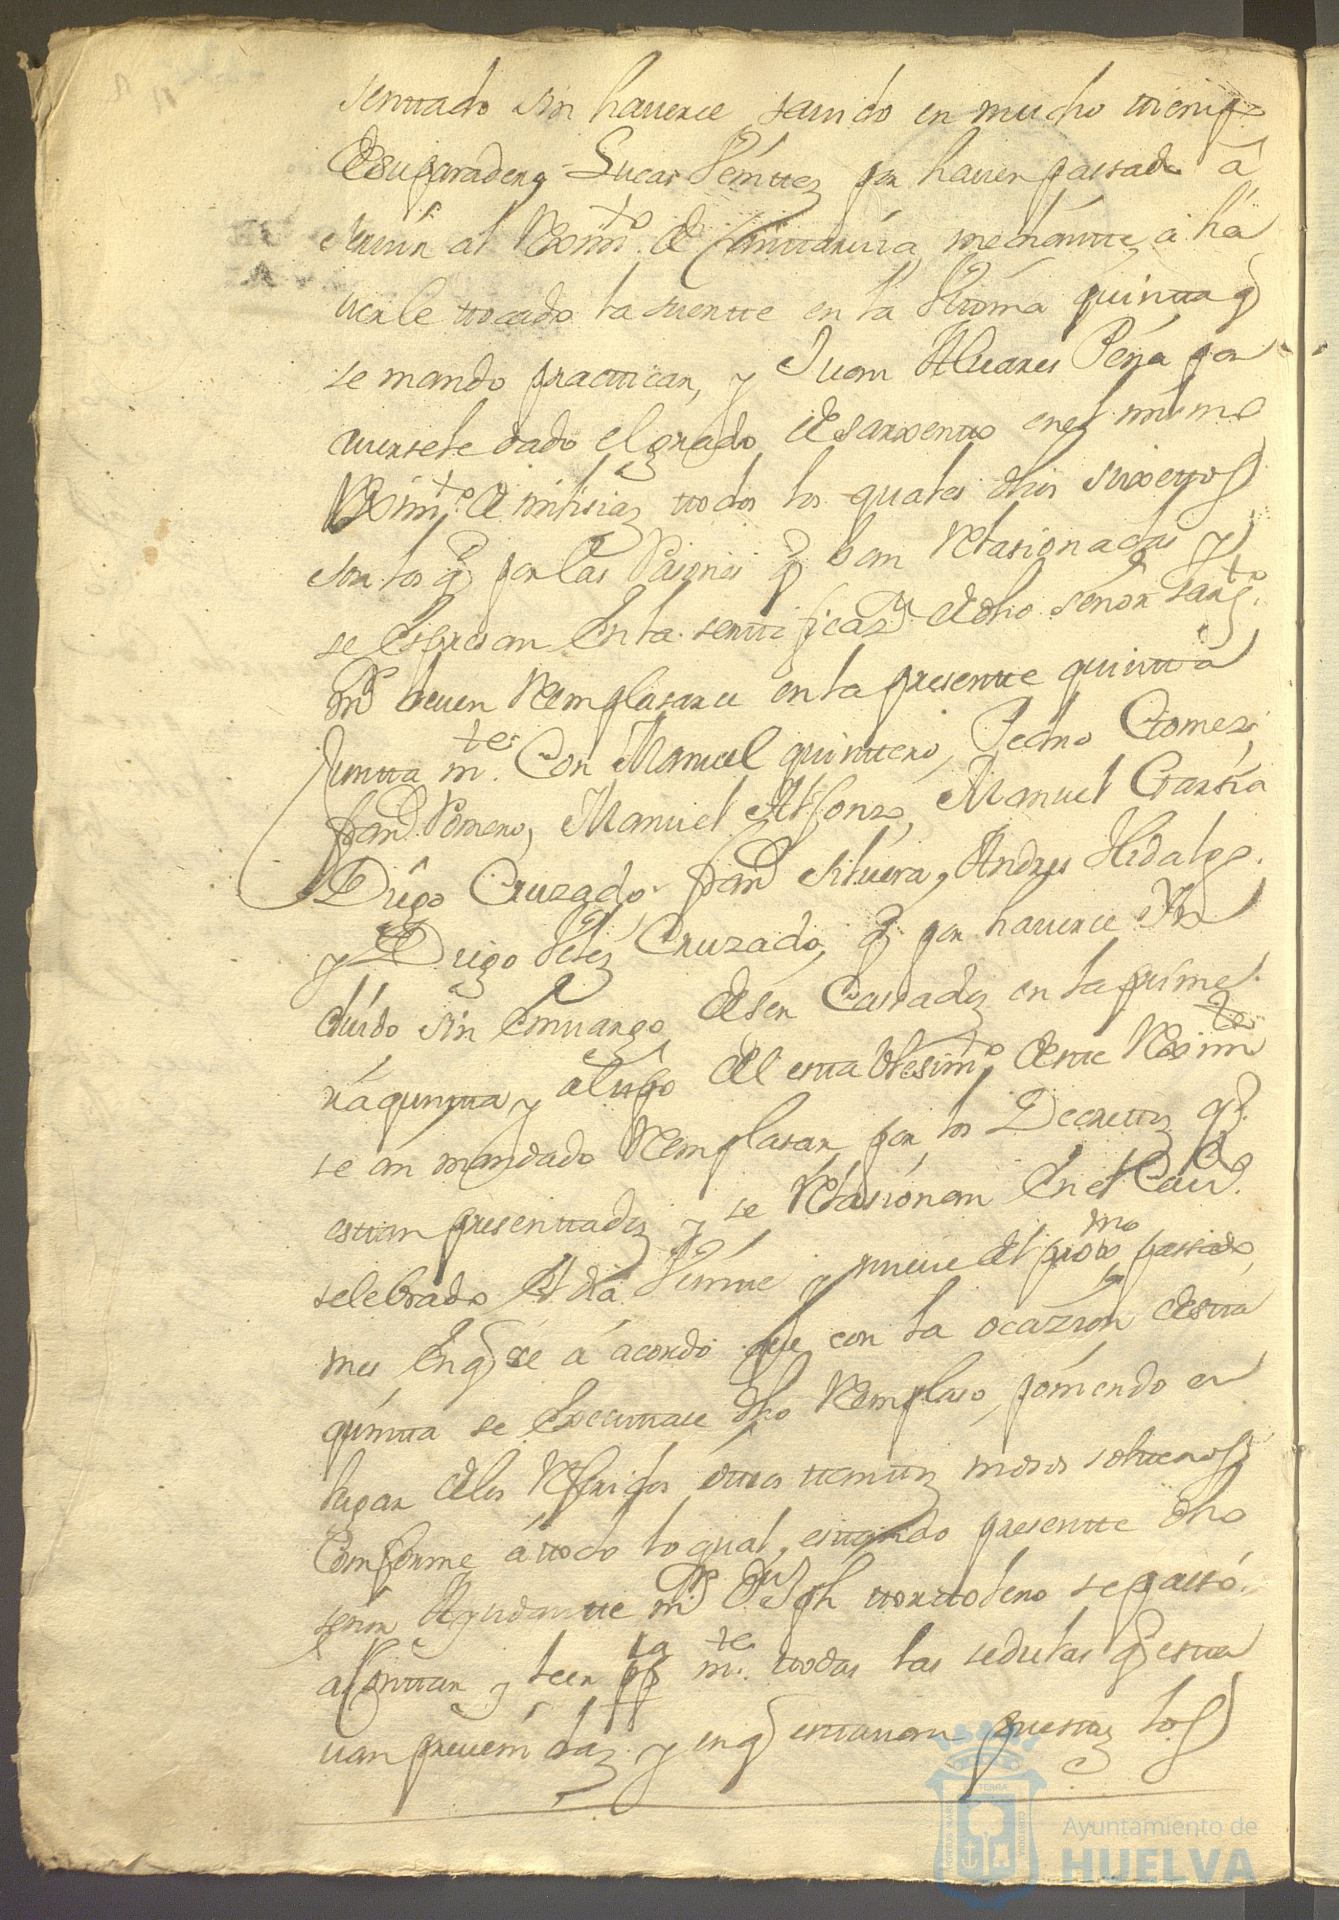 senttado sin hauerce sauido en mucho tiempo
de su paradero = Lucas Venittes por hauer passado â
seruir al Reximto. de Canttauria mediantte a ha
uerle ttocado la suertte en la vltima quintta q
se mando practticar, y Juan Aluares Peña por
auersele dado el grado de sarxentto en el mismo
Reximto. de milisias ttodos los quales dhos suxettos
son los q por las rasones q ban relasionadas y
se espresan en la serttificazn. de dho señor sargto.
mr. deuen remplasarce en la presentte quintta
juntta mte. con Manuel quinttero, Pedro Gomez,
franco. Romero, Manuel Alfonzo, Manuel Garsia
Diego Cruzado franco siluera, Andres Hidalgo.
y Diego Veles Cruzado, q por hauerce in
cluido sin embargo de ser casados en la prime
ra quintta y al tpo del esttablesimto. de estte Reximte
se an mandado remplasar por los Decrettos q
esttan presenttados y se relasionan en el Cauo.
selebrado el dia veintte y nueue del proximo passado
mes en q se â acordo que con la ocazion de estta
quintta se executtace dho remplaso, poniendo en
lugar de los referidos ottros ttanttos mosos solteros
conforme â ttodo lo qual, esttando presentte dho
señor Ayudantte mr. Dn. Jph ttorttolero se passó
a conttar y leer ppca mte. ttodas las sedulas q estta
uan preuenidas y en q esttauan puesttos los
Ayuntamiento de
HUELVA